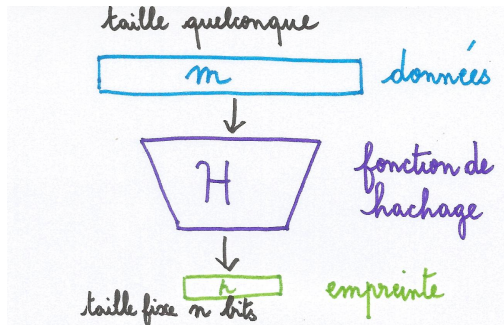 taille quelconque
m données
H fonction de
hachage
h empreinte
taille fixe n bits